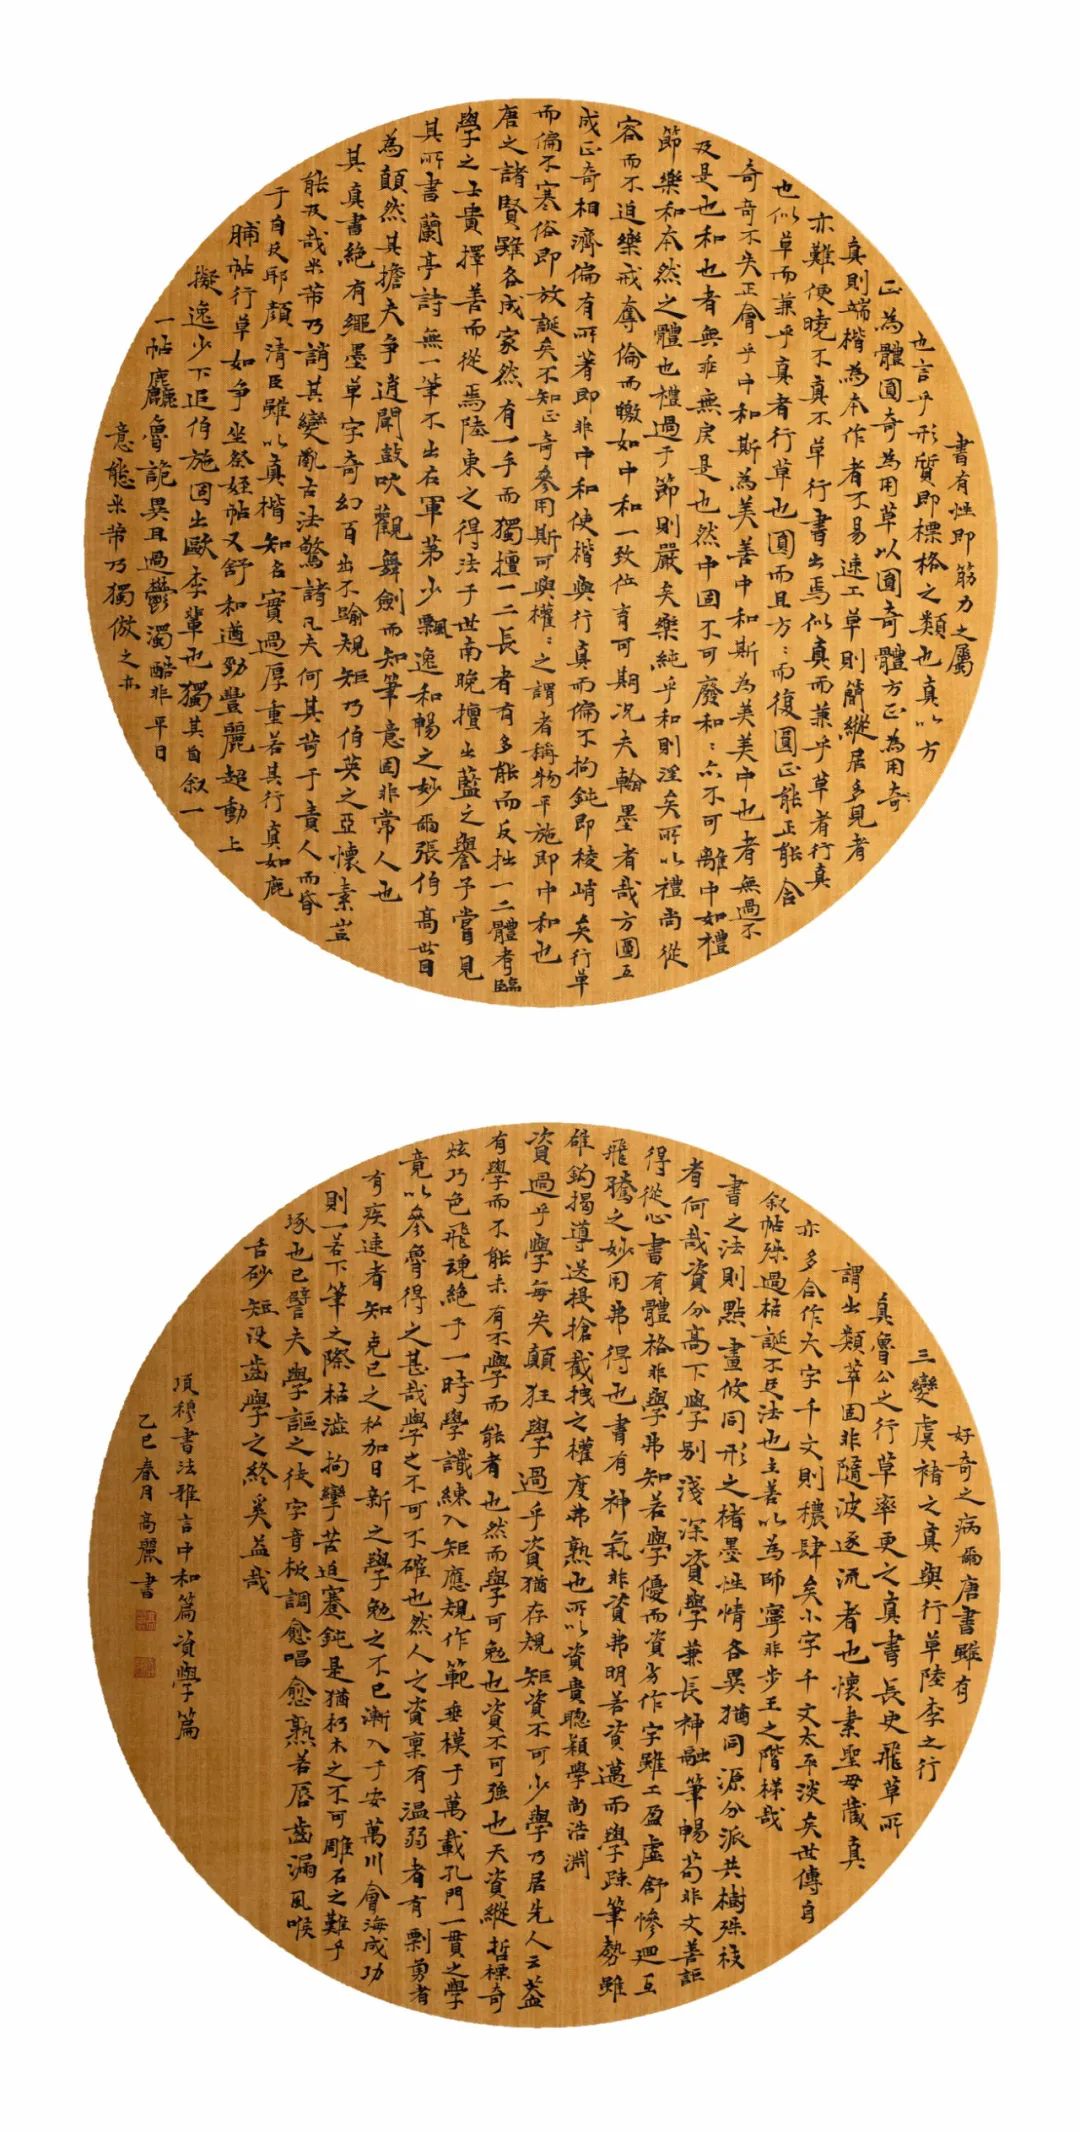 書有性即筋力之屬
也言乎形質即標格之類也真以方
正為體圓奇為用草以圓奇體方正為用奇
真則端楷為本作者不易速工草則簡縱居多見者
亦難便曉不真不草行書出焉似真而兼乎草者行真
也似草而兼乎真者行草也圓而且方：而復圓正能正能含
奇奇不失正會乎中和斯為美善中和斯為美美中也者無過不
及是也和也者無乖無戾是也然中固不可廢和：亦不可離中如禮
節樂和本然之體也禮過于節則嚴矣樂純乎和則淫矣所以禮尚從
容而不迫樂戒奪倫而皦如中和一致位育可期況夫翰墨者哉方圓互
成正奇相濟偏有所著即非中和使楷與行真而偏不拘鈍即棱峭矣行草
而偏不寒俗即放誕矣不知正奇參用斯可與權：之謂者稱物平施即中和也
唐之諸賢雖各成家然有一手而獨擅一二長者有多能而反拙一二體者臨
學之士貴擇善而從焉陸東之得法于世南晚擅出藍之譽予嘗見
其所書蘭亭詩無一筆不出右軍第少飄逸和暢之妙爾張伯高世目
為顛然其擔夫爭道聞鼓吹觀舞劍而知筆意固非常人也
其真書絕有繩墨草字奇幻百出不踰規矩乃伯英之亞懷素豈
能及哉米芾乃誚其變亂古法驚諸凡夫何其苛于責人而昏
于自反耶顏清臣雖以真楷知名實過厚重若其行真如鹿
脯帖行草如爭坐祭姪帖又舒和遒勁豐麗超動上
擬逸少下追伯施固出歐李輩也獨其自叙一
一帖麤魯詭異且過鬱濁酷非平日
意態米芾乃獨倣之亦
好奇之病爾唐書雖有
三變虞褚之真與行草陸李之行
真魯公之行草率更之真書長史飛草所
謂出類萃固非隨波逐流者也懷素聖母藏真
亦多合作大字千文則穠肆矣小字千文太平淡矣世傳自
叙帖殊過枯誕不足法也主善以為師寧非步王之階梯哉
書之法則點畫攸同形之楮墨性情各異猶同源分派共樹殊枝
者何哉資分高下學别淺深資學兼長神融筆暢苟非文善詎
得從心書有體格非學弗知若學優而資劣作字雖工盈虛舒慘迴互
飛騰之妙用弗得也書有神氣非資弗明若資邁而學疎筆勢雖
雄鈎揭導送提搶截拽之權度弗熟也所以資貴聰穎學尚浩淵
資過乎學每失顛狂學過乎資猶存規矩資不可少學乃居先人云蓋
有學而不能未有不學而能者也然而學可勉也資不可強也天資縱哲標奇
炫巧色飛魂絕于一時學識練入矩應規作範垂模于萬載孔門一貫之學
竟以參魯得之甚哉學之不可不確也然人之資稟有溫弱者有剽勇者
有疾速者知克己之私加日新之學勉之不已漸入于安萬川會海成功
則一若下筆之際枯澁拘攣苦迫蹇鈍是猶朽木之不可雕石之難乎
琢也已譬夫學謳之徒字音板調愈唱愈熟若唇齒漏風喉
舌砂短沒齒學之終奚益哉
項穆書法雅言中和篇資學篇
乙巳春月高麗書